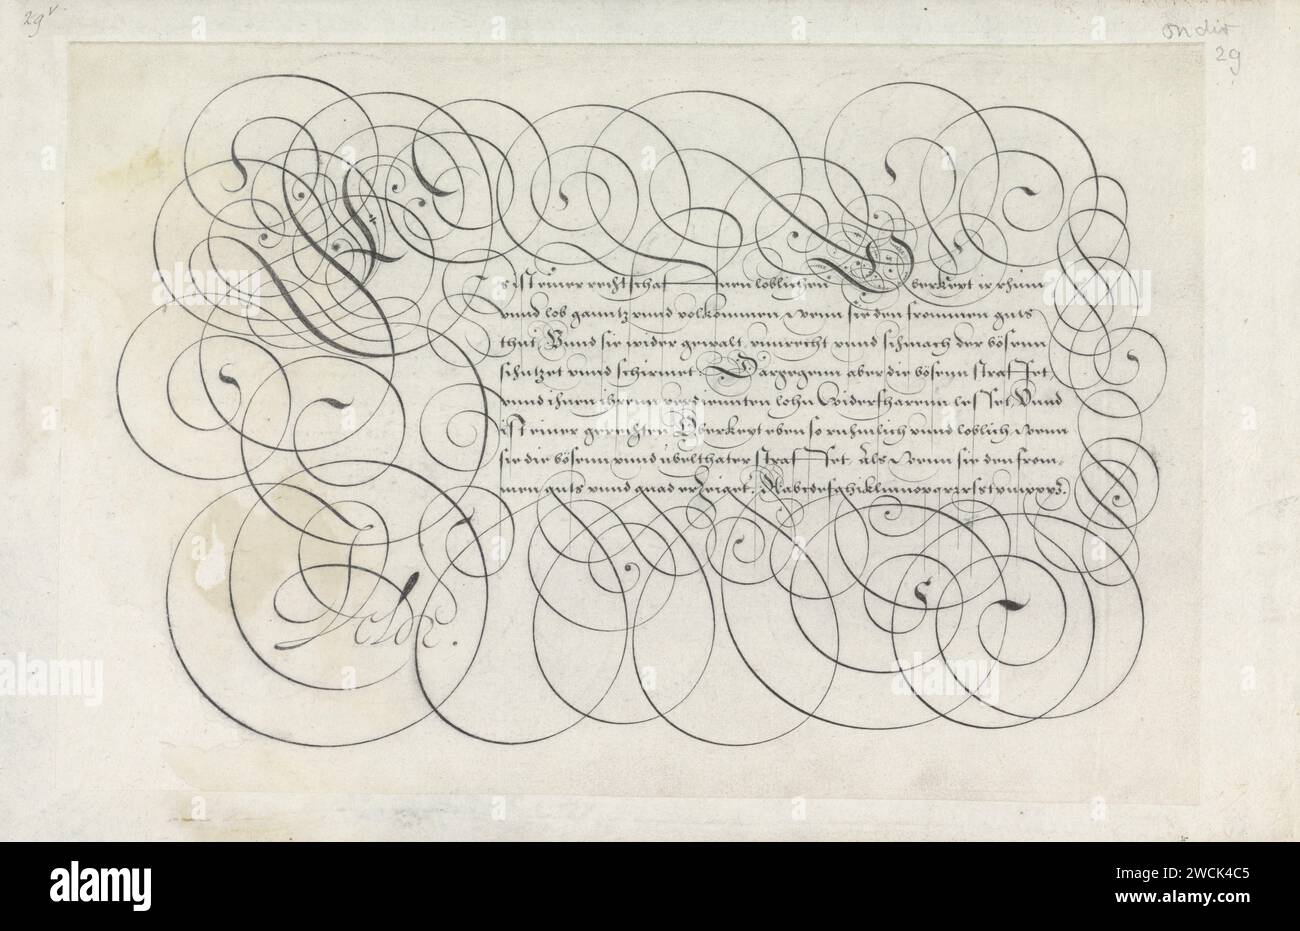 29v
29
Es ist einer rechtschaffnen loblichen Oberkeyt ir rhum
vnnd lob ganntz vnnd volkommen, Wenn sie den frommen guts
thut, Vund sie wider gewalt, vnnrecht vnnd schmach der bösenn
schützet vnnd schirmet. Dargegenn aber die bösenn straffet,
vnnd ihnen ihrenn verdienten lohn widerfharenn lesset, Vnnd
ist einer gerechten Oberkeyt eben so rühmlich vnnd loblich, Wenn
sie die bösenn vnnd übelthater straffet, Als Wenn sie den from-
men guts vnnd gnad erzeiget. Aabcdefghiklmnopqrzrsstvuwxyz.
alamy
Image ID: 2WCK4C5
www.alamy.com